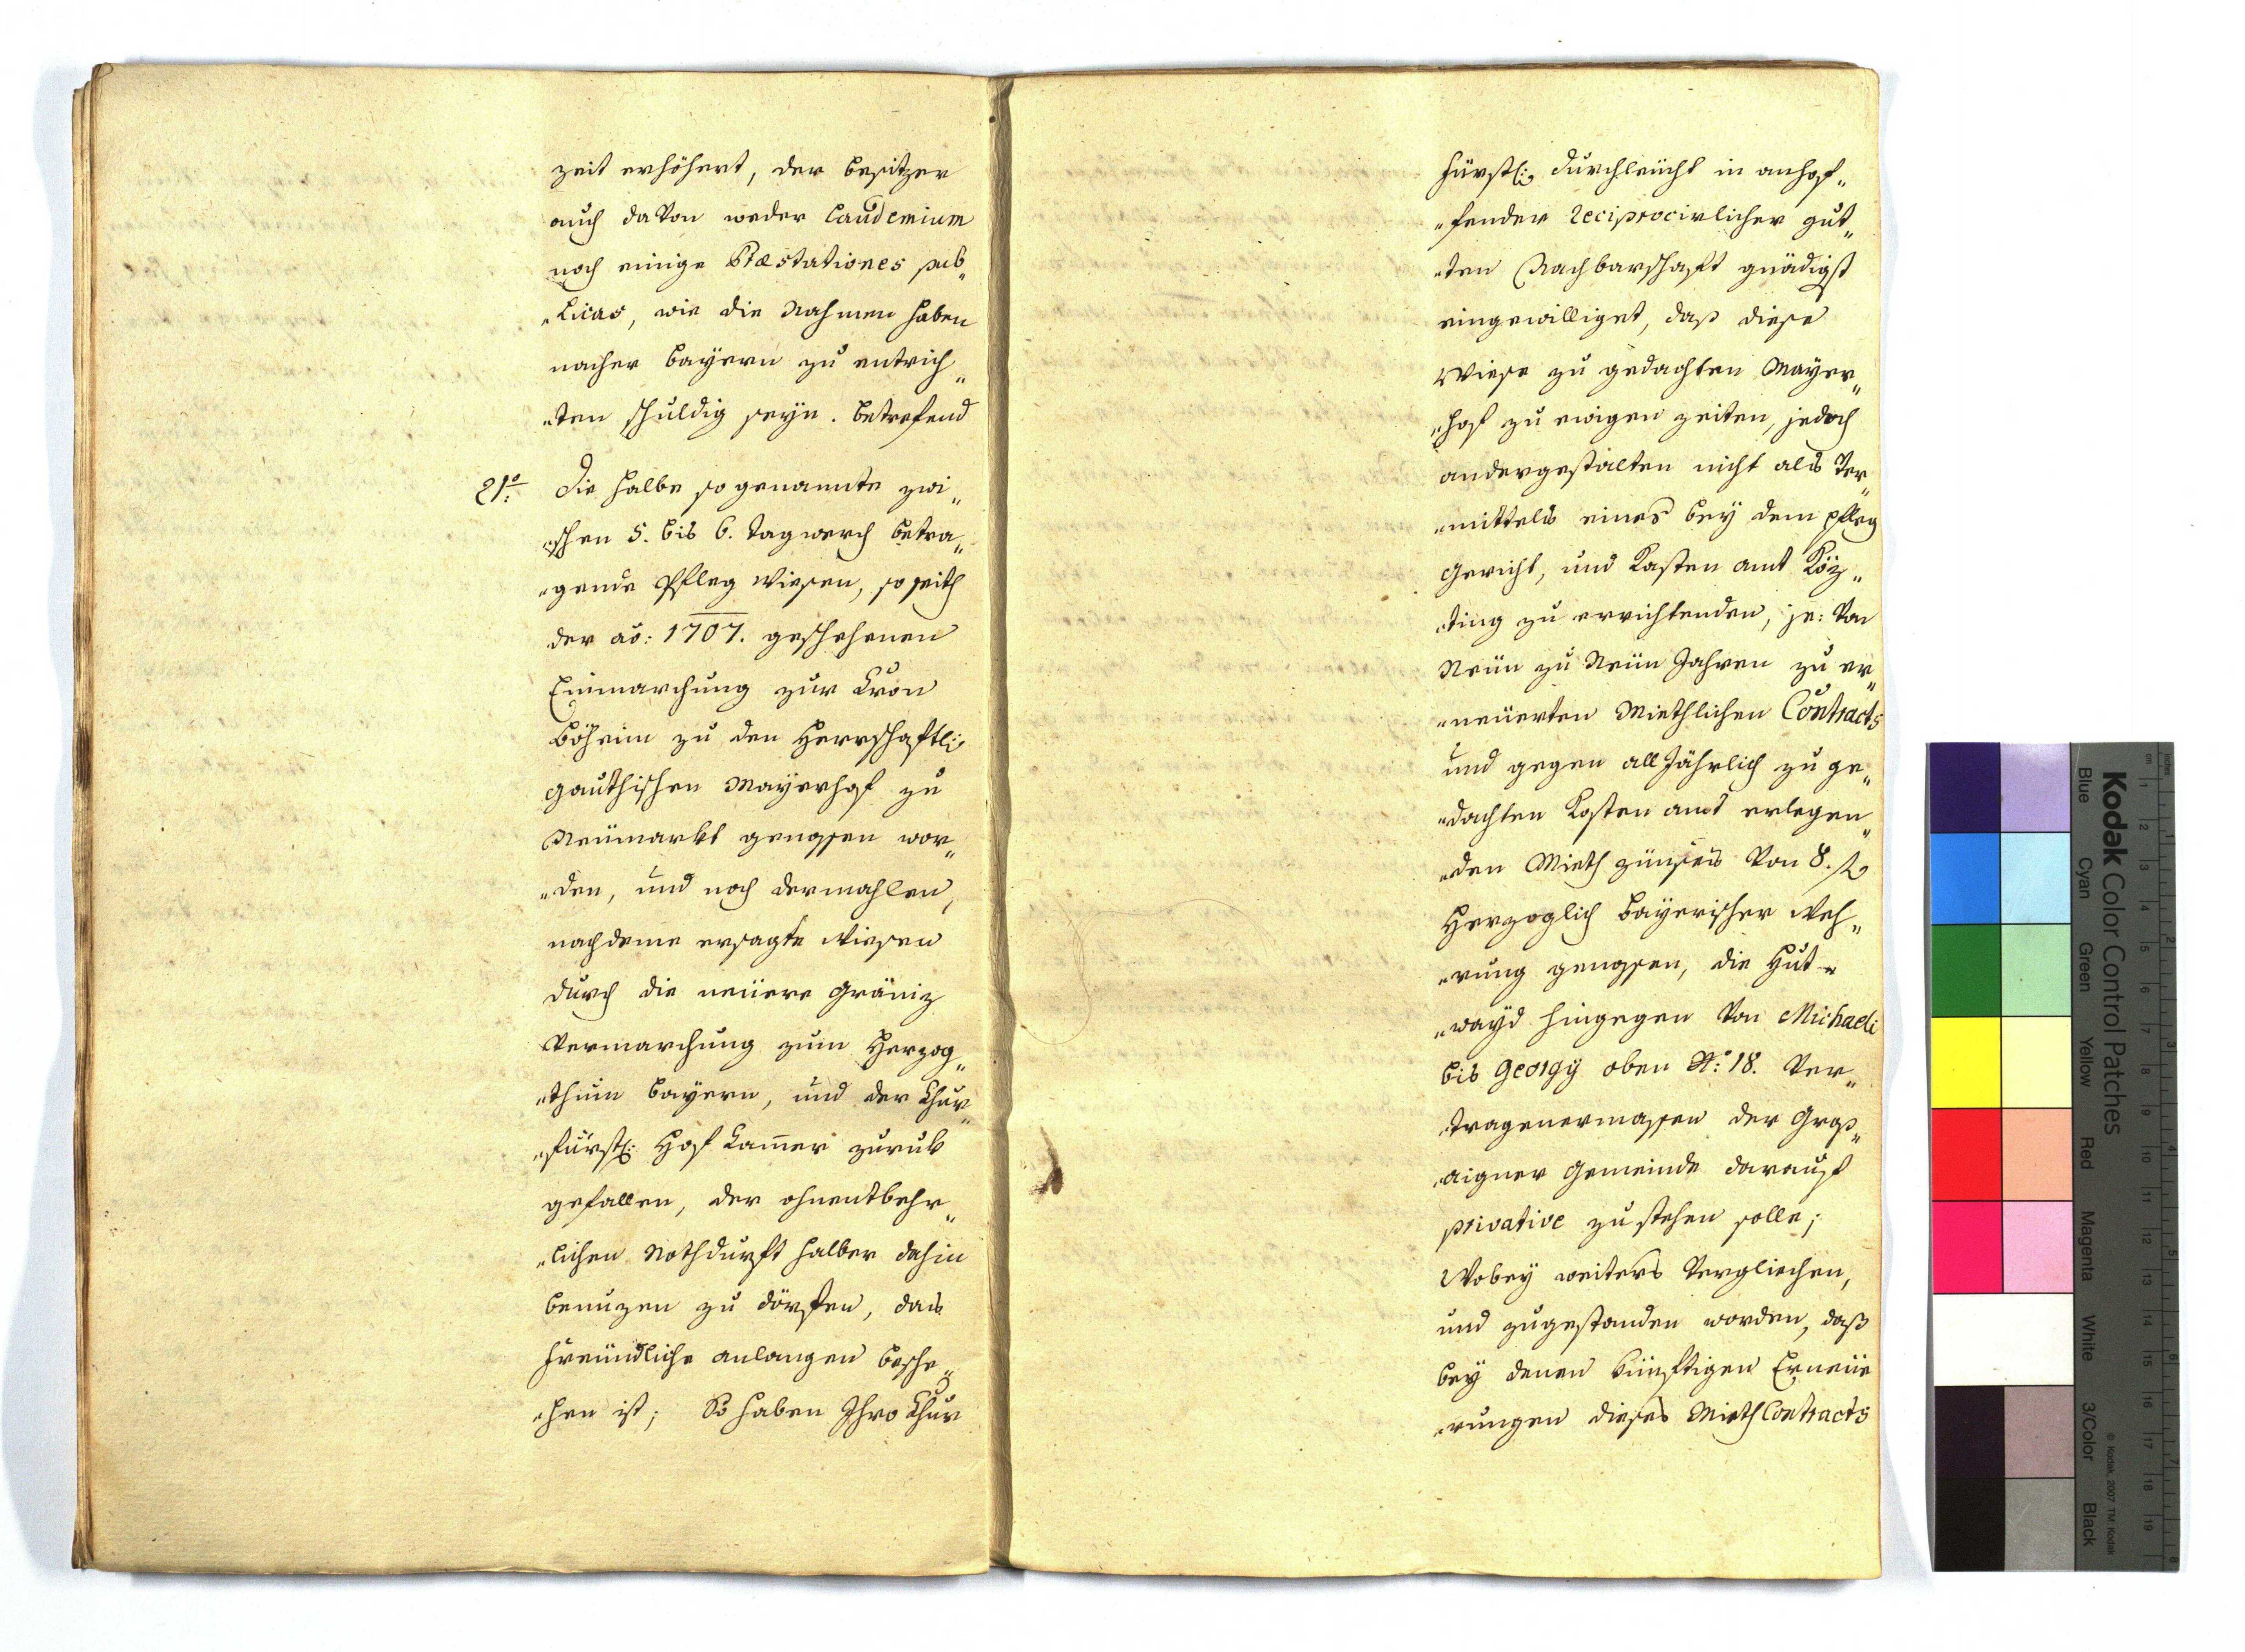 zeit erhöhert, der besitzer
auch davon weder Laudemium
noch einige Præstationes pub„
„licas, wie die Nahmen haben
nacher Bayern zu entrich„
„ten schuldig seyn. Betrefend
21mo: Die halbe so genannte zwi„
„schen 5. bis 6. tagwerch betra„
„gende Pfleg Wiesen, so seith
der ao: 1707. geschehenen
Einmarchung zur Cron
Böheim zu den Herrschaftl:
gauthischen Mayerhof zu
Neumarkt genossen wor„
„den, und noch dermahlen,
nachdeme ersagte Wiesen
durch die neuere Gräniz
Vermarchung zum Herzog„
„thum Bayern, und der Chur„
„fürstl: Hof Cammer zuruk
gefallen, der ohnentbehr„
„lichen Nothdurft halber dahin
benuzen zu dörfen, das
freundliche anlangen besche„
„hen ist; So haben Ihro Chur
fürstl: Durchleucht in anhof„
„fender reciprocirlicher gut„
„ten Nachbarschaft gnädigst
eingewilliget, daß diese
Wiese zu gedachten Mayer„
„hof zu ewigen zeiten, jedoch
andergestalten nicht als Ver„
„mittels eines bey dem Pfleg
Gericht, und Kasten amt Köz„
„ting zu errichtenden, je: Von
Neun zu Neun Jahren zu er„
„neuerten Miethlichen Contracts
und gegen all Jährlich zu ge„
„dachten Kasten amt erlegen„
„den Mieth zünses von 8. fl
Herzoglich Bayerischer Weh„
„rung genossen, die Hut„
„wayd hingegen Von Michaeli
bis Georgy oben No: 18. Ver„
„tragenermassen der Groß„
„aigner Gemeinde darauf
privative zustehen solle;
Wobey weiters Verglichen,
und zugestanden worden, daß
bey denen künftigen Erneue
„rungen dieses Mieth Contracts
Kodak Color Control Patches
Blue Cyan Green Yellow Red Magenta White 3/Color Black
© Kodak, 2007 TM: Kodak
inches 1 2 3 4 5 6 7 8
cm 1 2 3 4 5 6 7 8 9 10 11 12 13 14 15 16 17 18 19